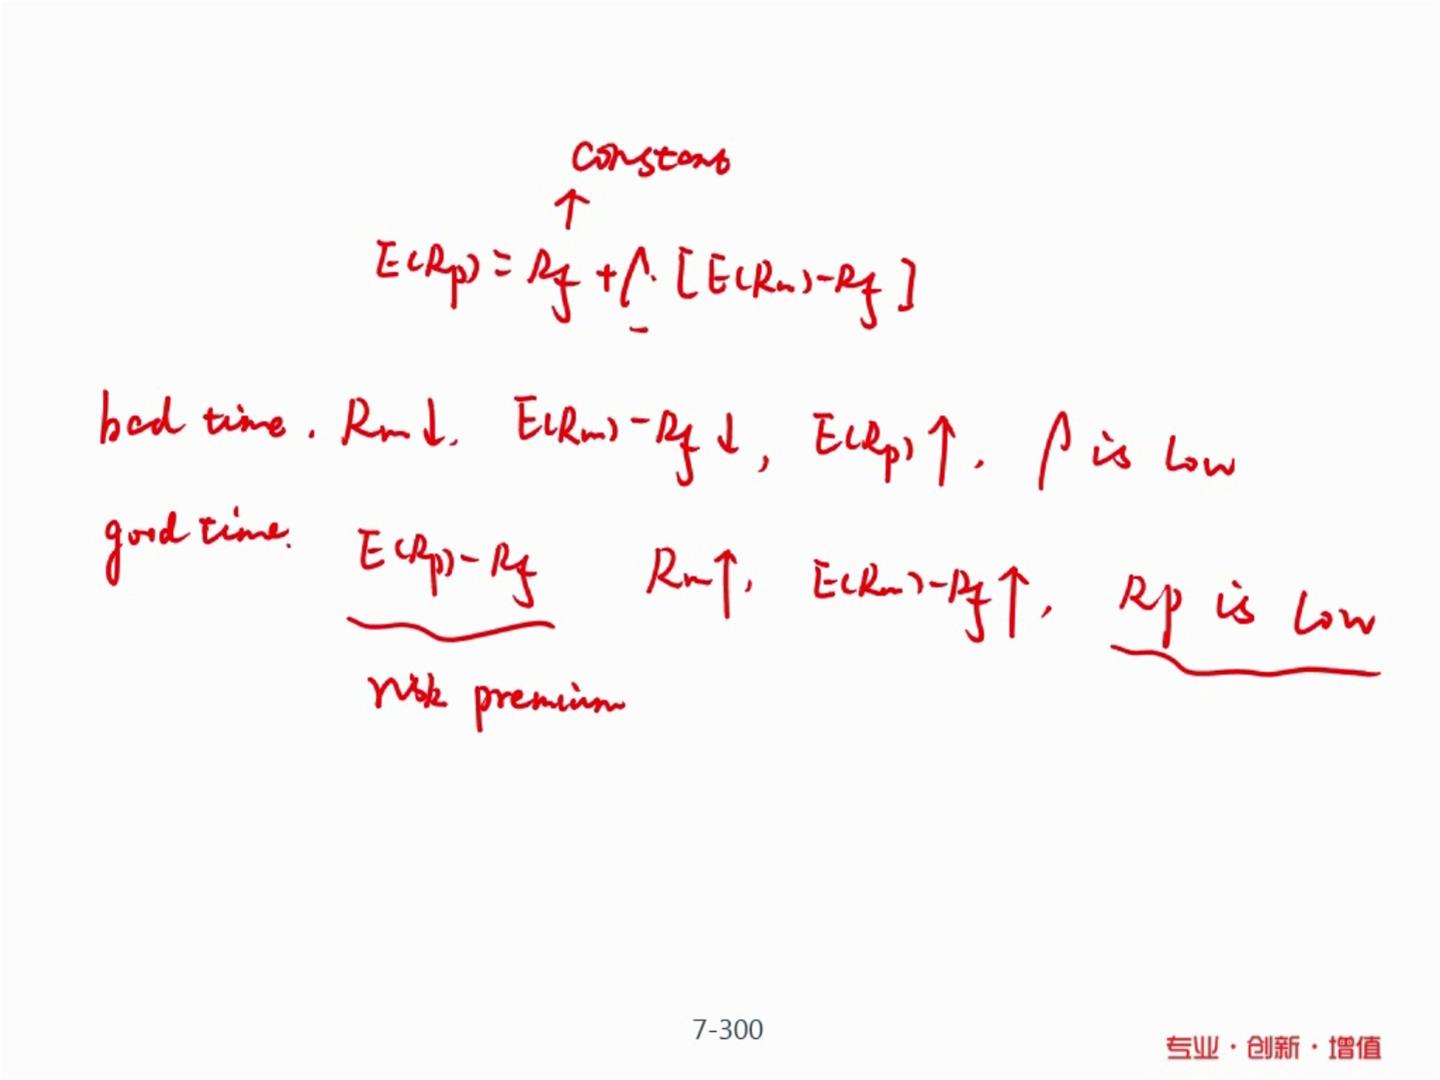 constant
↑
E(Rp) = Rf + β · [E(Rm) - Rf]
bad time. Rm↓. E(Rm) - Rf ↓, E(Rp)↑. β is low
good time. E(Rp) - Rf Rm↑. E(Rm) - Rf↑. Rp is low
risk premium
7-300
专业·创新·增值